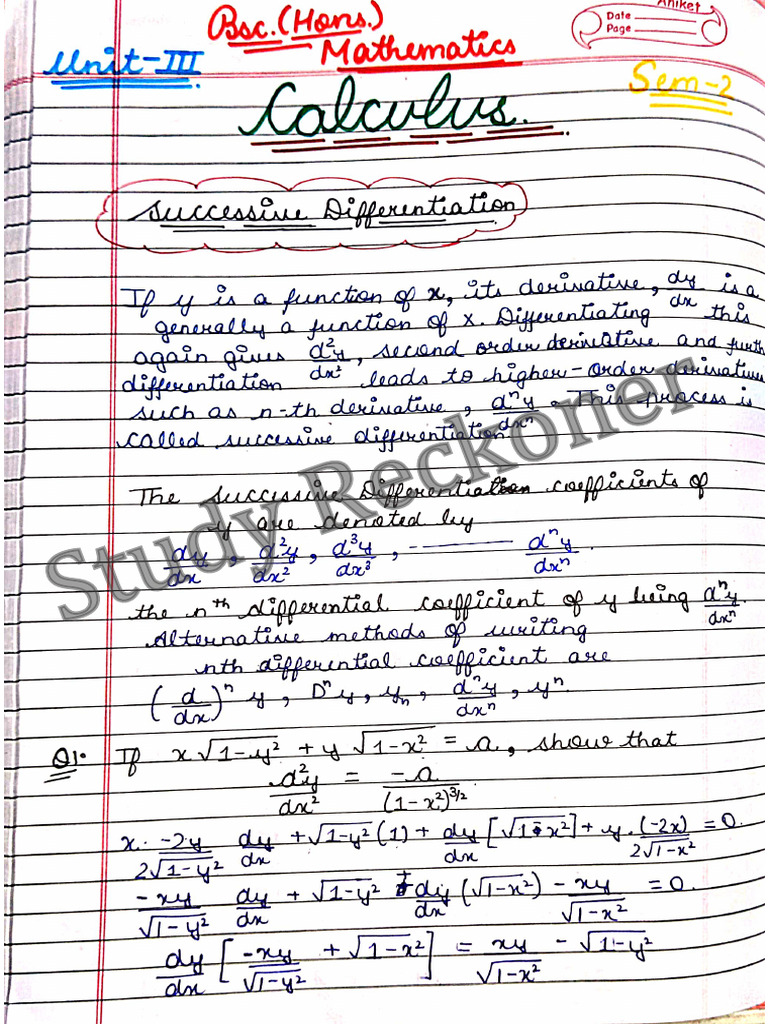 Aniket
Date
Page
Bsc. (Hons.)
Mathematics
Unit-III
Sem-2
Calculus.
Successive Differentiation
If y is a function of x, its derivative, dy/dx is a
generally a function of x. Differentiating this
again gives d²y/dx², second order derivative and furth
differentiation leads to higher-order derivatives
such as n-th derivative, dⁿy/dxⁿ. This process is
called successive differentiation.
The successive Differentiation coefficients of
y are denoted by
dy/dx, d²y/dx², d³y/dx³, ------- dⁿy/dxⁿ.
the nᵗʰ differential coefficient of y being dⁿy/dxⁿ.
Alternative methods of writing
nth differential coefficient are
(d/dx)ⁿ y, Dⁿy, yₙ, dⁿy/dxⁿ, yⁿ.
Q1. If x√(1-y²) + y√(1-x²) = a, show that
d²y/dx² = -a/(1-x²)^(3/2)
x·(-2y)/(2√(1-y²)) dy/dx + √(1-y²)(1) + dy/dx[√(1-x²)] + y·(-2x)/(2√(1-x²)) = 0.
-xy/√(1-y²) dy/dx + √(1-y²) + dy/dx(√(1-x²)) - xy/√(1-x²) = 0.
dy/dx[-xy/√(1-y²) + √(1-x²)] = xy/√(1-x²) - √(1-y²)
Study Reckoner